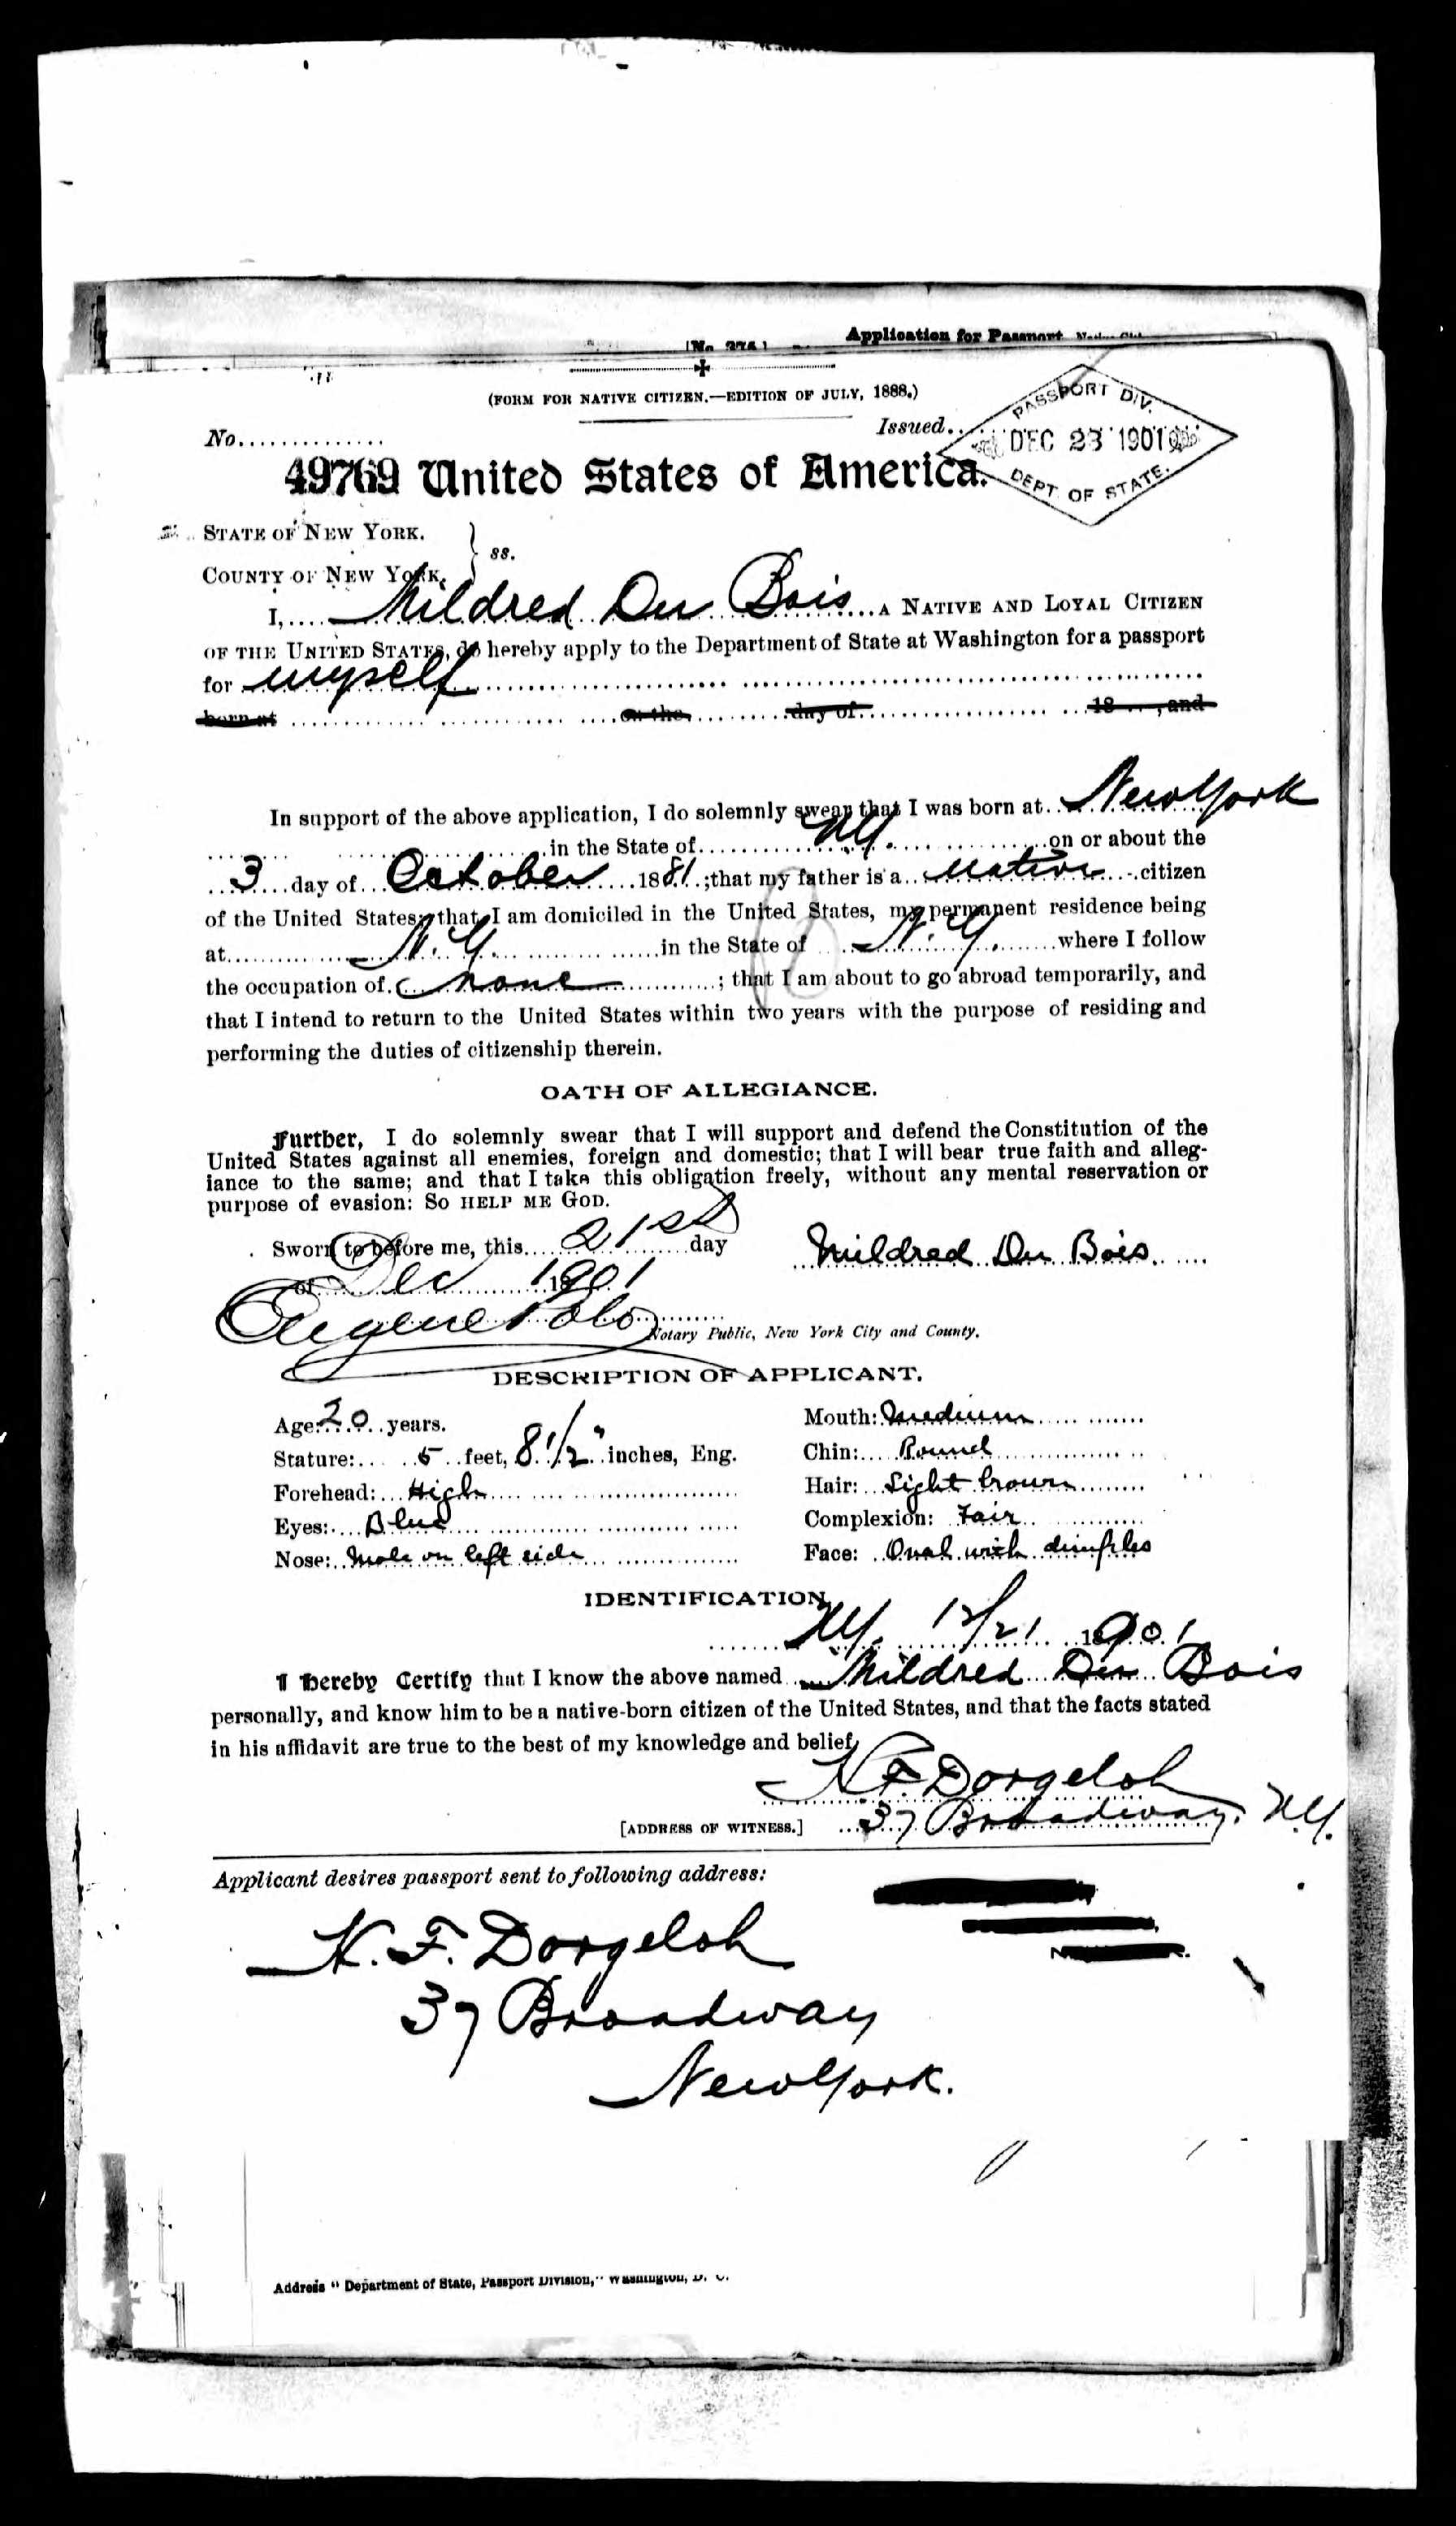 Application for Passport
(FORM FOR NATIVE CITIZEN.—EDITION OF JULY, 1888.)
No.
Issued
PASSPORT DIV.
DEC 23 1901
DEPT OF STATE.
49769 United States of America.
STATE OF NEW YORK.
ss.
COUNTY OF NEW YORK.
I, Mildred Du Bois A NATIVE AND LOYAL CITIZEN
OF THE UNITED STATES, do hereby apply to the Department of State at Washington for a passport
for myself
born at on the day of 18 , and
In support of the above application, I do solemnly swear that I was born at New York
in the State of NY. on or about the
3 day of October 1881; that my father is a native citizen
of the United States; that I am domiciled in the United States, my permanent residence being
at N.Y. in the State of N.Y. where I follow
the occupation of none; that I am about to go abroad temporarily, and
that I intend to return to the United States within two years with the purpose of residing and
performing the duties of citizenship therein.
OATH OF ALLEGIANCE.
Further, I do solemnly swear that I will support and defend the Constitution of the
United States against all enemies, foreign and domestic; that I will bear true faith and alleg-
iance to the same; and that I take this obligation freely, without any mental reservation or
purpose of evasion: SO HELP ME GOD.
Sworn to before me, this 21st day
Mildred Du Bois
of Dec 1901
Eugene
Notary Public, New York City and County.
DESCRIPTION OF APPLICANT.
Age: 20 years.
Mouth: Medium
Stature: 5 feet, 8 1/2" inches, Eng.
Chin: Round
Forehead: High
Hair: Light brown
Eyes: Blue
Complexion: Fair
Nose: Mole on left side
Face: Oval with dimples
IDENTIFICATION
NY. 12/21 1901
I hereby Certify that I know the above named Mildred Du Bois
personally, and know him to be a native-born citizen of the United States, and that the facts stated
in his affidavit are true to the best of my knowledge and belief.
H. F. Dorgeloh
[ADDRESS OF WITNESS.] 37 Broadway. N.Y.
Applicant desires passport sent to following address:
H. F. Dorgeloh
37 Broadway
New York.
Address "Department of State, Passport Division," Washington, D. C.